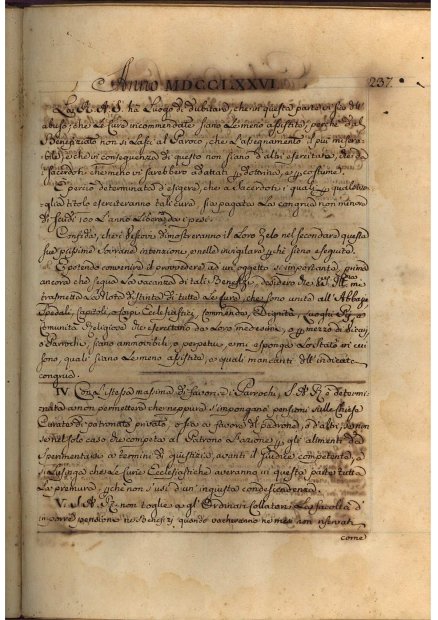 Anno MDCCLXXVI. 237.
La R. A. S. ha luogo di dubitare, che in questa parte vi sia dell'
abuso, che le Cure incommendate siano le meno assistite, perche o al
Benefiziato non si lasci al Paroco, che l'assegnamento il piu misera-
bile, e che in conseguenza di questo non siano d'altri esercitate, che da
Sacerdoti, che meno vi sarebbero adattati p dottrina, e p costume.
E percio determinata d'esigere, che a Sacerdoti, i quali p qualsivo-
glia titolo eserciteranno tal cura, sia pagata la congrua non minore
di Scudi 100 l'anno liberi da pesi.
Confida, che i Vescovi dimostreranno il loro zelo nel secondare questa
sua piissima Sovrana intenzione, e nelle vigilare, p che sieno eseguite.
E potendo convenire il provvedere ad un oggetto si importante, prima
ancora che segua la vacanza di tali Benefizj, desidero che
trasmetta la Nota distinta di tutte le Cure, che sono unite all' Abbazie
Spedali, Capitoli, Corpi Ecclesiastici, Commende, Dignita, Luoghi Pij, o
Comunita Religiose che esercitano da loro medesime, o p mezzo di Vicarj
o Parrochi, siano ammovibili, o perpetui, e mi esponga lo stato in cui
sono, quali siano le meno assistite, e quali mancanti dell' indicate
congrue.
IV. Con l'istessa massima di favorire i Parrochi, S. A. R. e determi-
nata a non permettere che neppure s'impongano pensioni sulle Chiese
Curate di patronato privato, o sia a favore del padrone, o d'altri, se non
se nel solo caso che competa al Patrono l'azione p gli alimenti da
sperimentarsi a termini di giustizia, avanti il Giudice competente, e
si lusinga che le Curie Ecclesiastiche averanno in questa parte tutta
la premura, p che non s'usi d'un' ingiusta condescendenza.
V. S. A. R. non toglie a gl' Ordinarj Collatori la facolta d'
imporre pensione ne Benefizj, quando vacheranno ne mesi non riservati
come